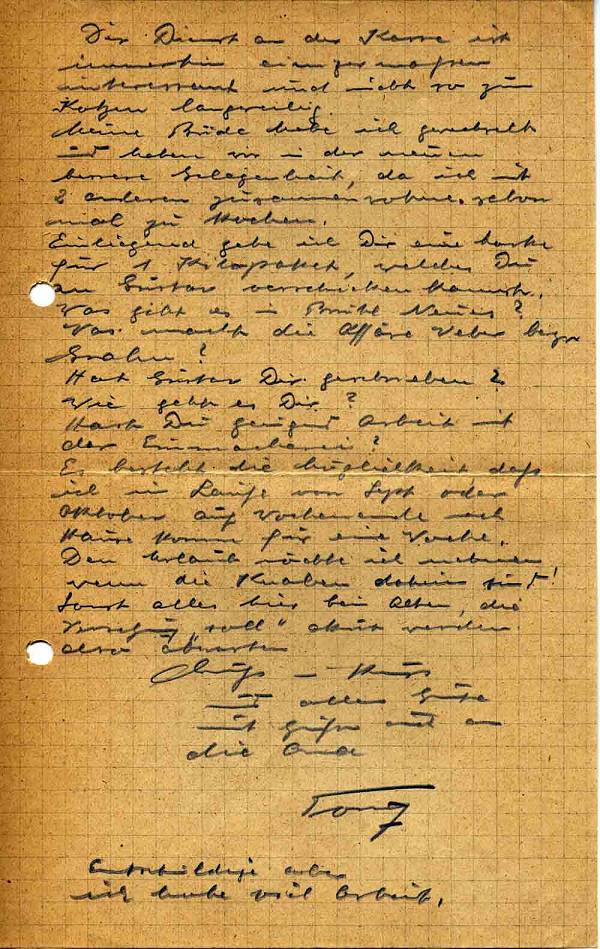 Der Dienst an der Kasse ist
immerhin einigermassen
interessant und nicht so zum
Kotzen langweilig.
Meine Bude habe ich gewechselt
und haben wir in der neuen
bessere Gelegenheit, da ich mit
2 anderen zusammenwohne, schon
mal zu kochen.
Einliegend gebe ich Dir eine Marke
für 1 Kilopaket, welches Du
an Gustav verschicken kannst.
Was gibt es in Brühl Neues?
Was macht die Affäre Weber bezw
Hat Gustav Dir geschrieben?
Wie geht es Dir?
Hast Du genügend Arbeit mit
der Einmacherei?
Es besteht die Möglichkeit dass
ich im Laufe von Sept oder
Oktober auf Wochenende nach
Hause komm für eine Woche.
Den Urlaub möchte ich nehmen
wenn die Knaben daheim sind!
Sonst alles hier beim Alten, die
"soll" akut werden
also abwarten
Gruss - Kuss
und alles Gute
mit Gruss auch an
die
Tony
Entschuldige aber
ich habe viel Arbeit.